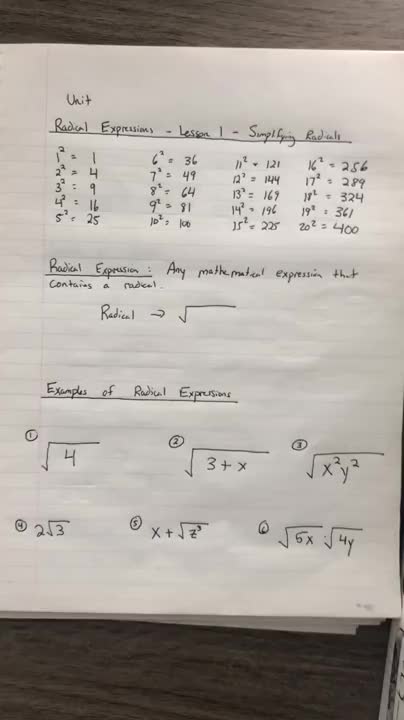 Unit
Radical Expressions - Lesson 1 - Simplifying Radicals
1² = 1 6² = 36 11² = 121 16² = 256
2² = 4 7² = 49 12² = 144 17² = 289
3² = 9 8² = 64 13² = 169 18² = 324
4² = 16 9² = 81 14² = 196 19² = 361
5² = 25 10² = 100 15² = 225 20² = 400
Radical Expression : Any mathematical expression that
contains a radical.
Radical → √
Examples of Radical Expressions
① √4 ② √(3 + x) ③ √(x²y²)
④ 2√3 ⑤ x + √z³ ⑥ √5x · √4y